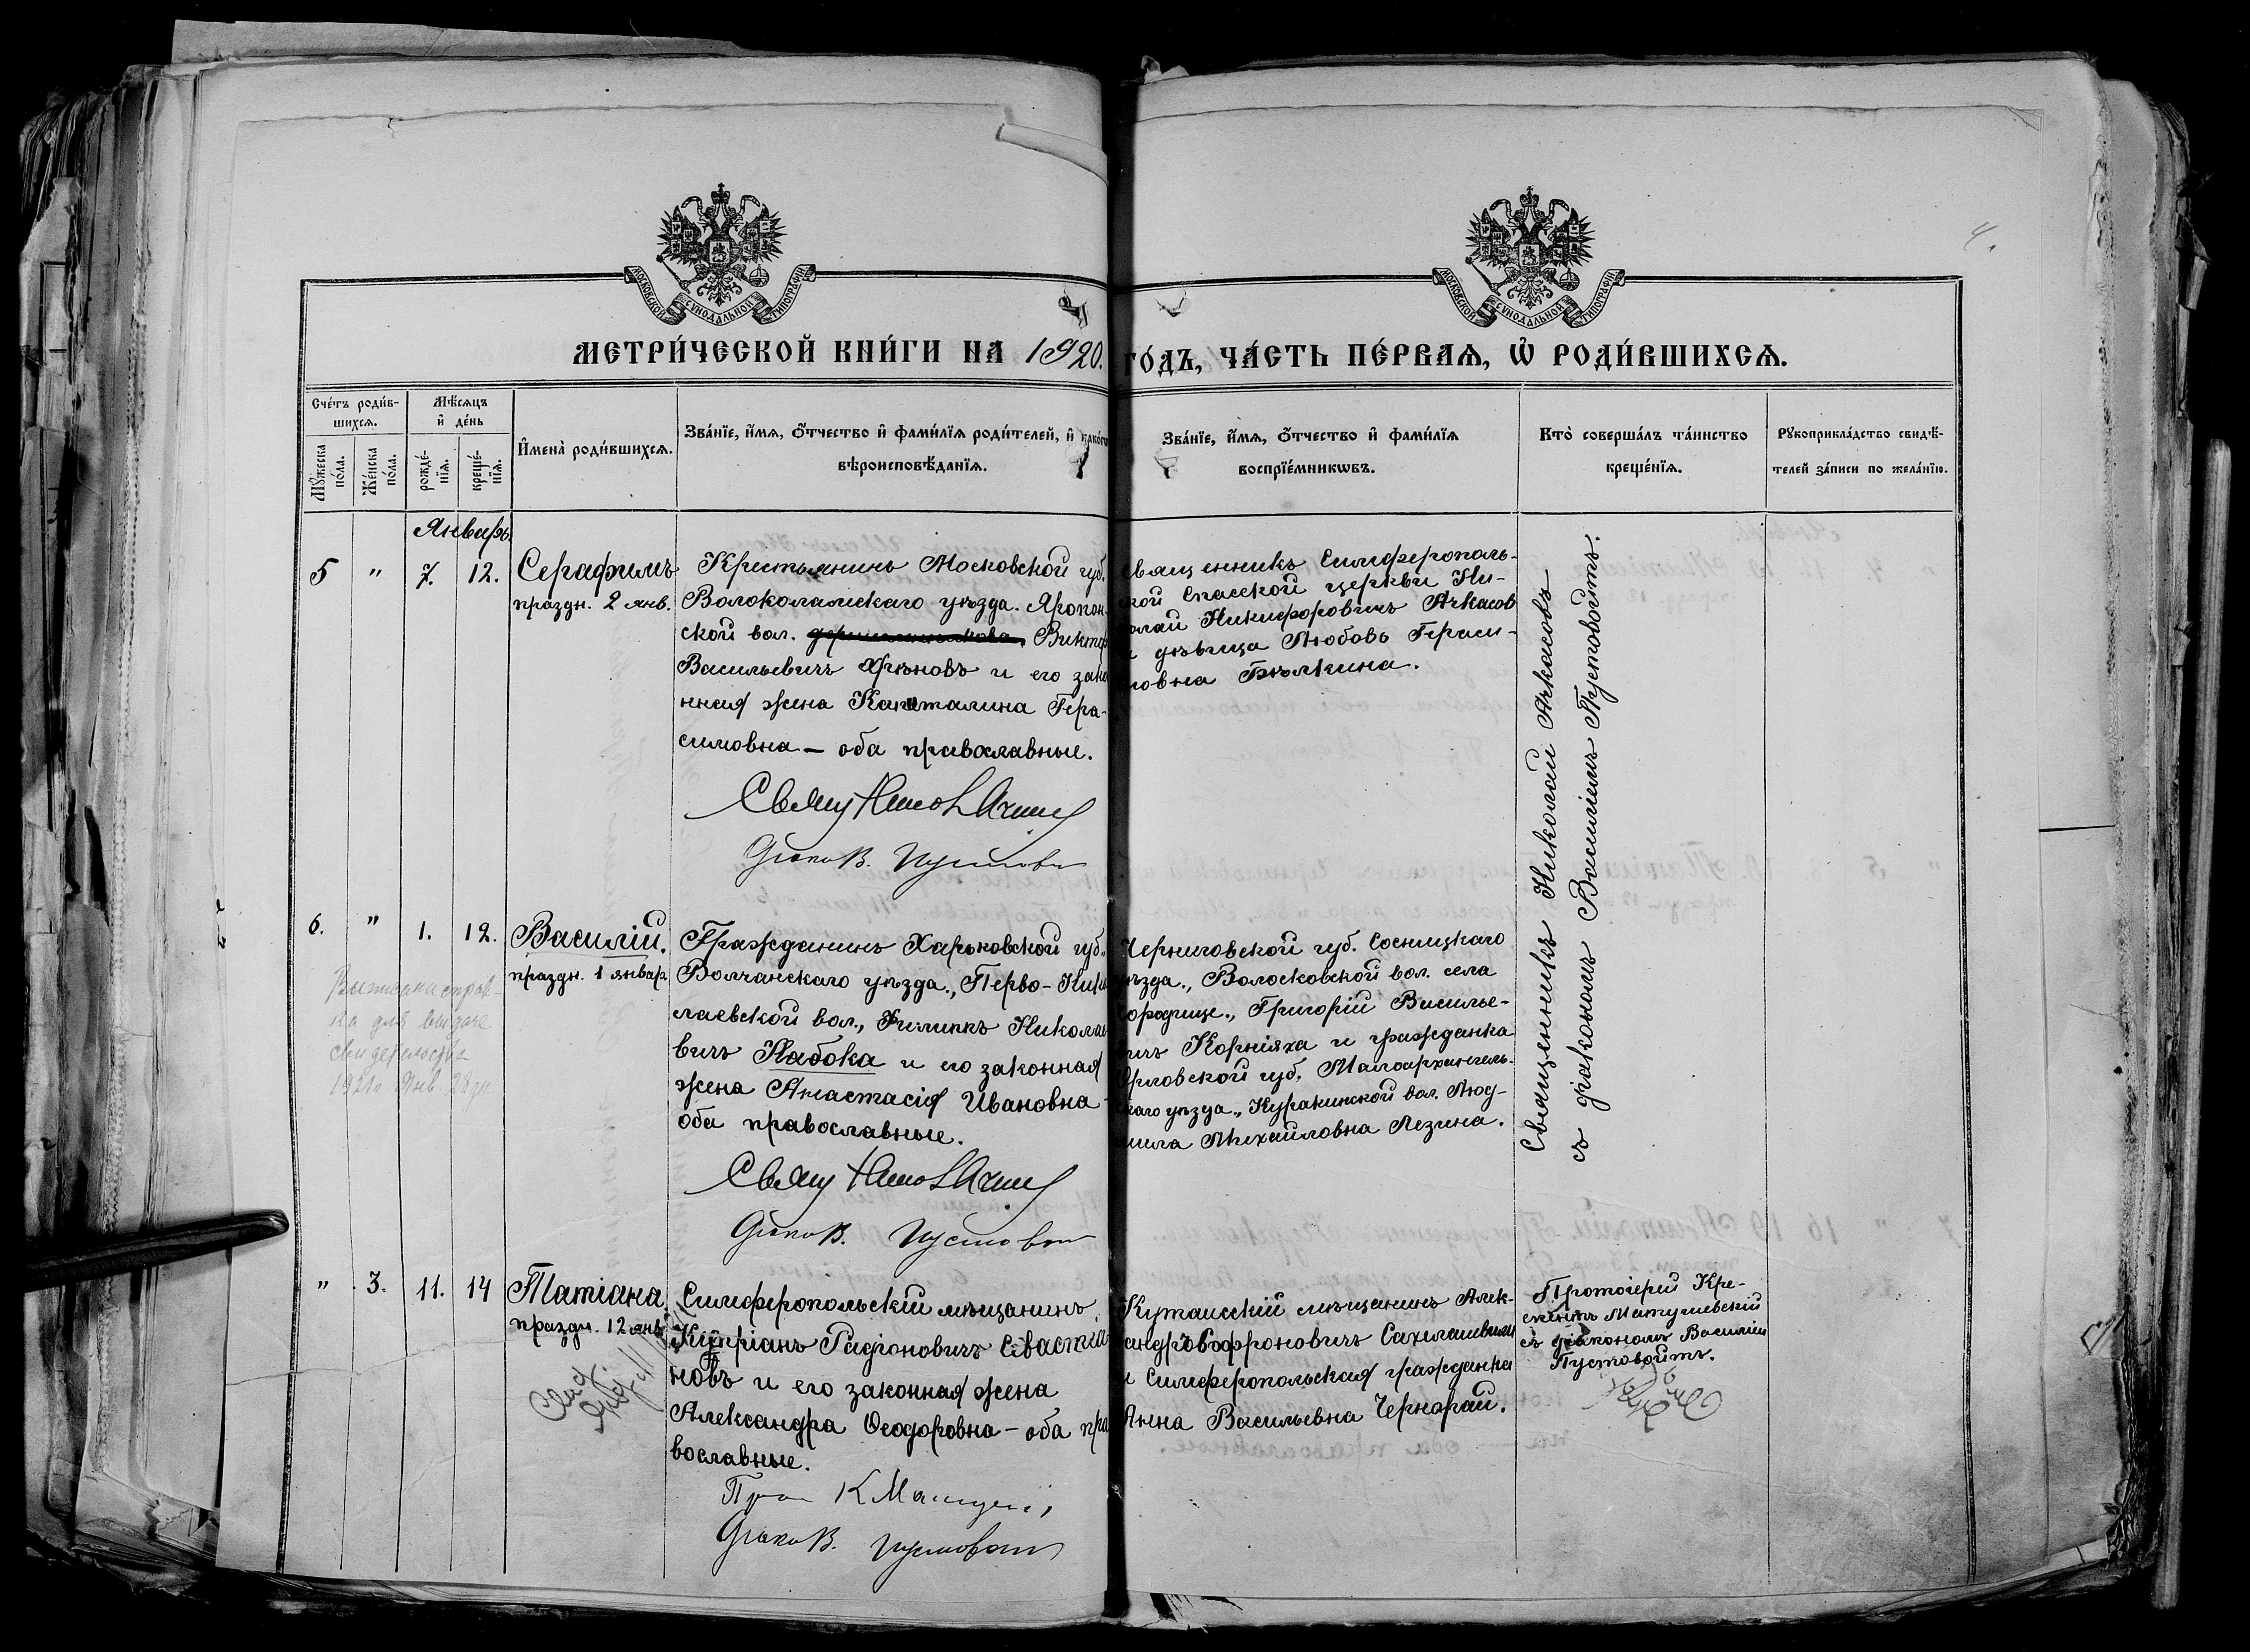 МОСКОВСКОЙ СѴНОДАЛЬНОЙ ТИПОГРАФІИ
МОСКОВСКОЙ СѴНОДАЛЬНОЙ ТИПОГРАФІИ
4.
МЕТРИ́ЧЕСКОЙ КНИ́ГИ НА 1920. ГО́ДЪ, ЧА́СТЬ ПЕ́РВАѦ, Ѡ҆ РОДИ́ВШИХСѦ.
Сче́тъ роди́в-
шихсѧ.
Мѣ́сѧцъ
и҆ де́нь
Мꙋ́жеска
по́ла.
Же́нска
по́ла.
рожде́-
нїѧ.
креще́-
нїѧ.
И҆мена̀ роди́вшихсѧ.
Зва́нїе, и҆́мѧ, ѻ҆́тчество и҆ фами́лїѧ роди́телей, и҆ како́гѡ
вѣроисповѣ́данїѧ.
Зва́нїе, и҆́мѧ, ѻ҆́тчество и҆ фами́лїѧ
воспрїе́мникѡвъ.
Кто̀ соверша́лъ та́инство
креще́нїѧ.
Рꙋкоприкла́дство свидѣ́-
телей за́писи по жела́нїю.
Январь.
5 " 7. 12.
Серафимъ
праздн. 2 янв.
Крестьянинъ Московской губ.
Волоколамскаго уѣзда. Яропол-
ской вол. Виктор
Васильевичъ Хрѣновъ и его зако
нная жена Капиталина Гера-
симовна — оба православные.
Дьяко В. Пустово
священникъ Симферополь-
ской Спасской церкви Ни-
олай Никифоровичъ Ачкасов
и дѣвица Любовь Гераси-
мовна Бѣлкина.
Священникъ Николай Ачкасовъ
съ діакономъ Василіемъ Пустовойтъ.
6. " 1. 12.
Василій.
праздн. 1 январ
Выписана справ-
ка для выдаче
свидетельства
1921г. Янв. 28 дн.
Гражданинъ Харьковской губ.
Волчанскаго уѣзда., Перво-Нико
лаевской вол., Филиппъ Никола
вичъ Набока и его законная
жена Анастасія Ивановна -
оба православные.
Дьяко В. Пустовой
Черниговской губ. Сосницкаго
уѣзда., Волосковской вол. села
Городище., Григорій Василье-
вичъ Корніяха и гражданка
Орловской губ. Малоархангель-
скаго уѣзда., Куракинской вол. Люд-
мила Михайловна Лезина.
" 3. 11. 14
Татіана.
праздн. 12 янв.
Симферопольскій мѣщанинъ
Кипріанъ Радіоновичъ Севастья
новъ и его законная жена
Александра Ѳеодоровна — оба пра
вославные.
Прот К Матуше
Дьяко В. Пустовойт
Кутаисскій мѣщанинъ Алек-
сандръ Софроновичъ Сахелашвили
и Симферопольская гражданка
Анна Васильевна Чернорай.
Протоіерей Кре-
скентъ Матушевскій
съ діакономъ Василіем
Пустовойтъ.